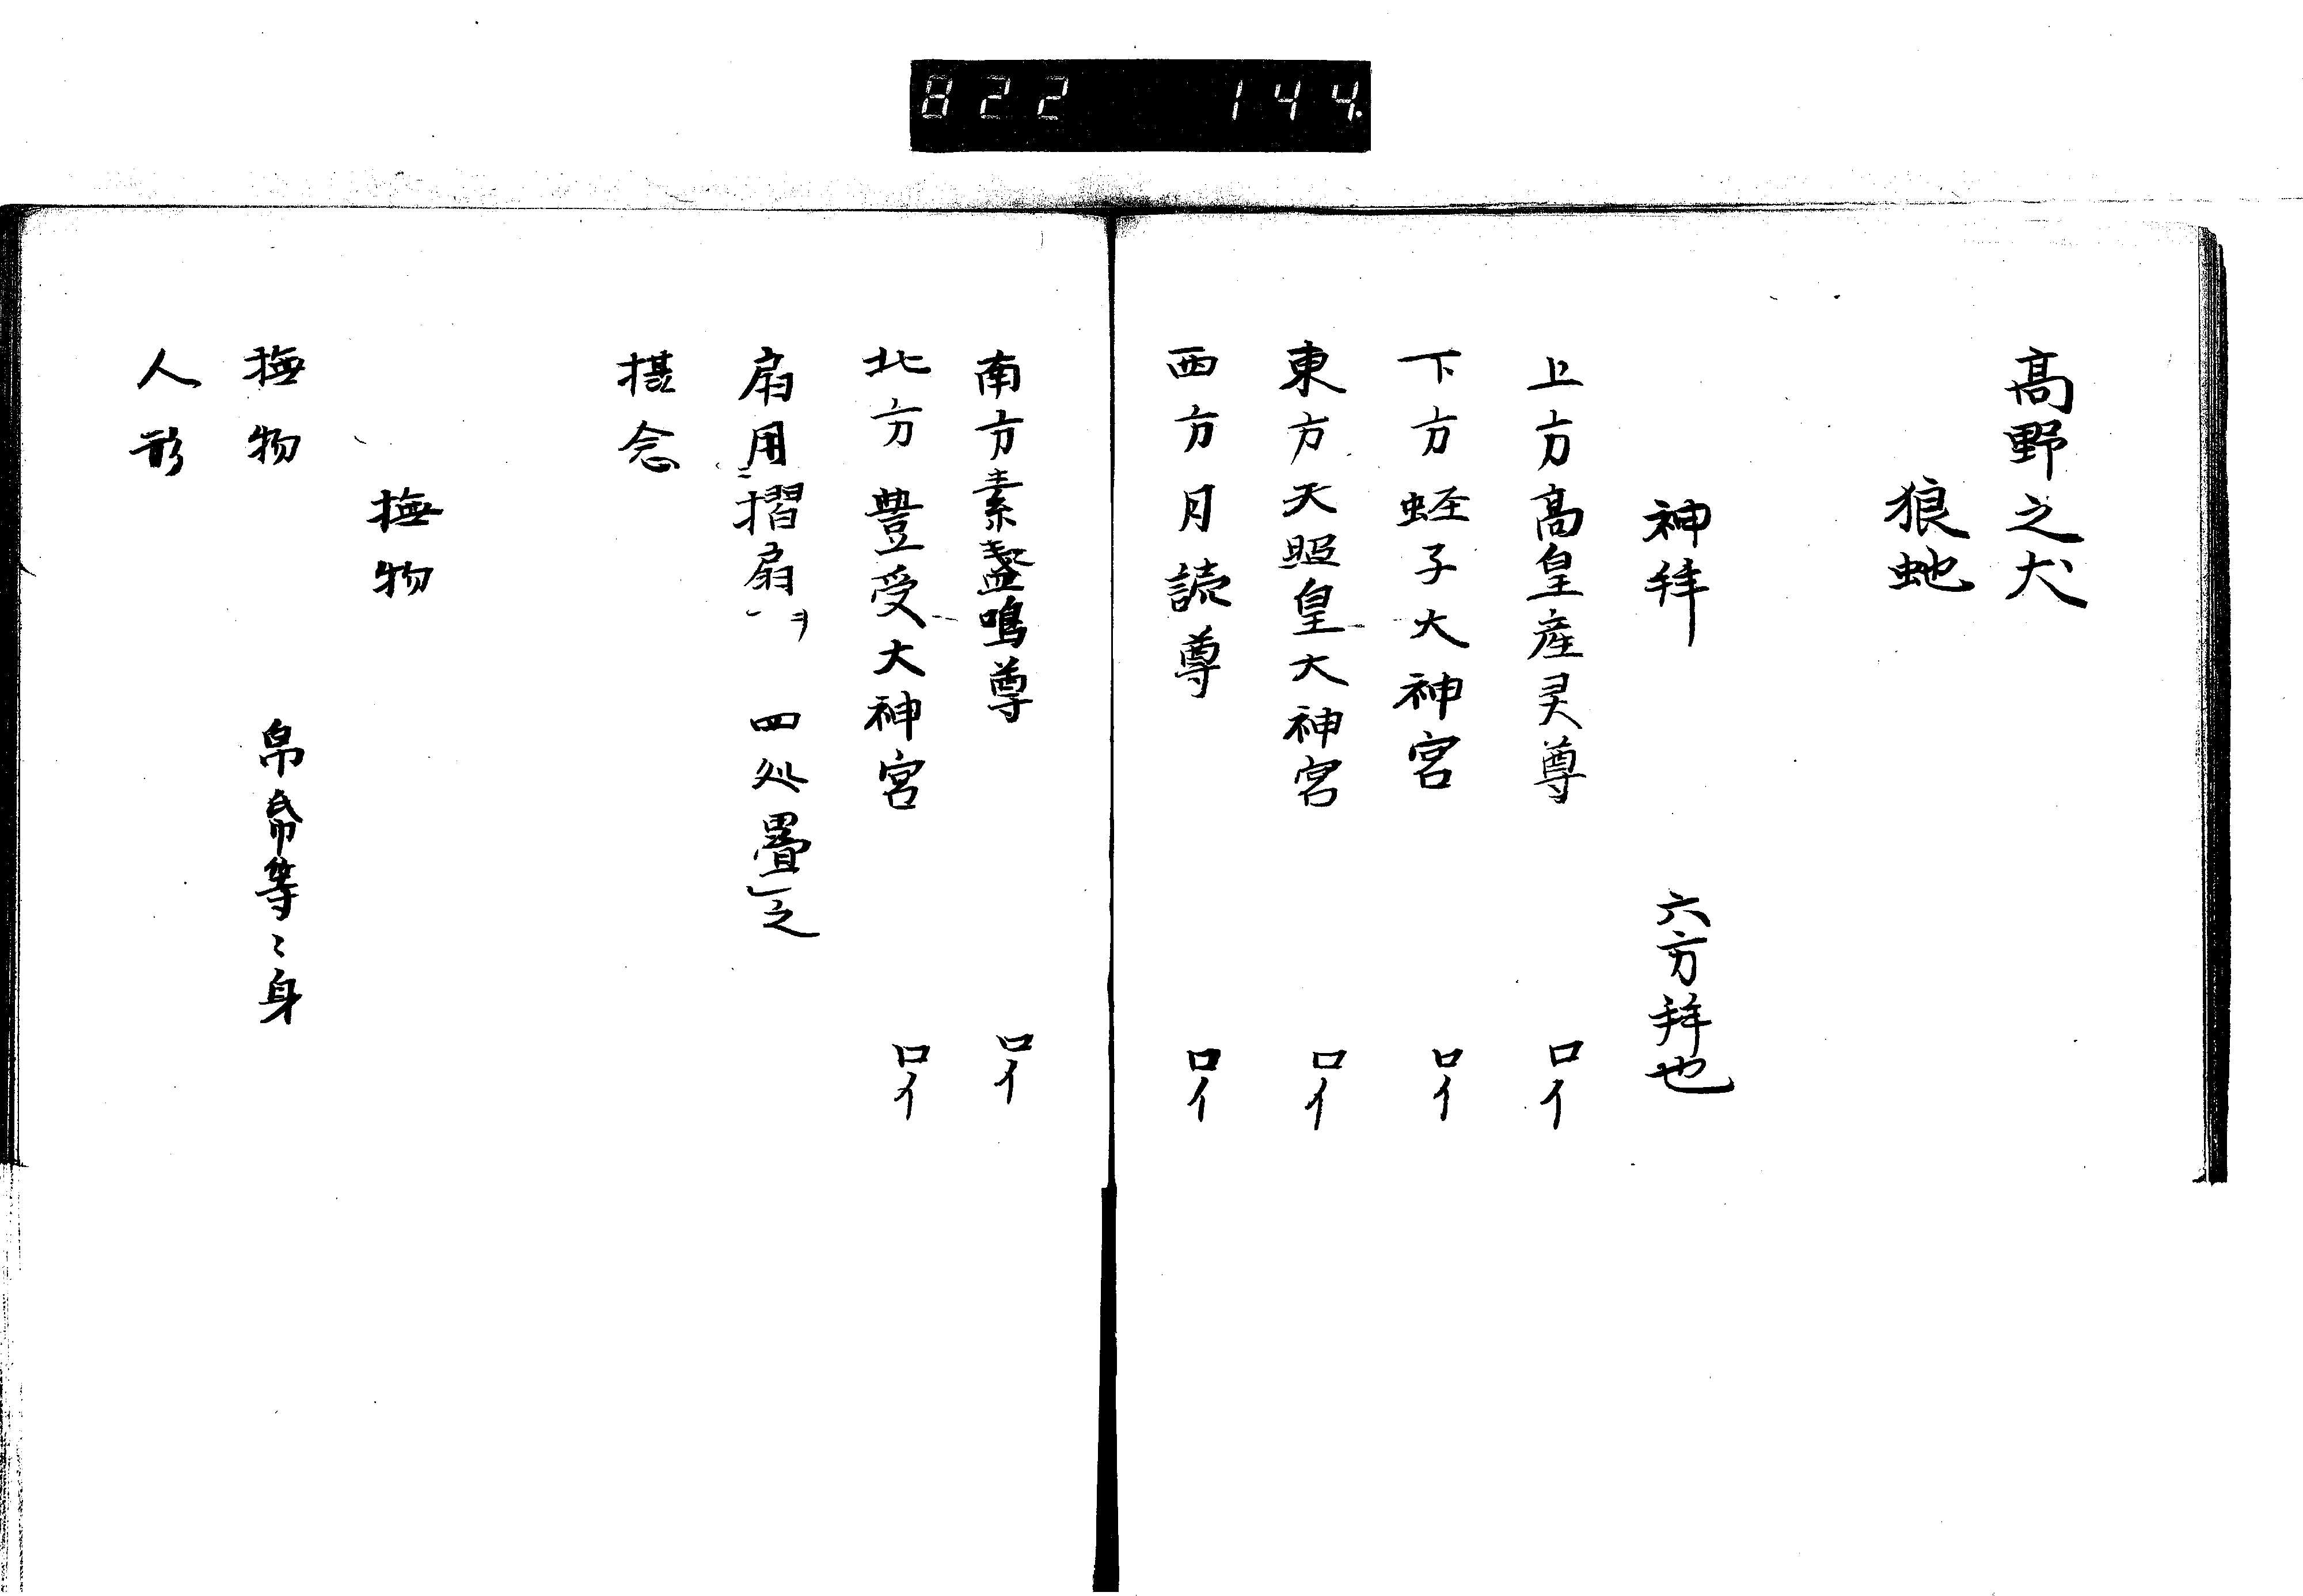 822 144.
高野之犬
狼虵
神拜
六方拜也
上方高皇産灵尊 口イ
下方蛭子大神宮 口イ
東方天照皇大神宮 口イ
西方月読尊 口イ
南方素盞嗚尊 口イ
北方豊受大神宮 口イ
扇用ニ摺扇ヲ 四処疊之
念
撫物
撫物 帛等ミ身
人形